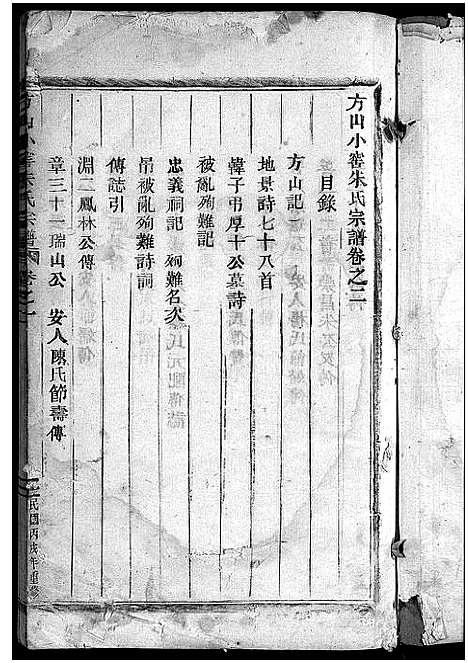 方山小窰朱氏宗譜卷之二
目錄
方山記
地景詩七十八首
韓子弔厚十公墓詩
被亂殉難記
忠義祠記 殉難名次
弔被亂殉難詩詞
傳誌引
淵二鳳林公傳
章三十一瑞山公 安人陳氏節壽傳
方山小窰朱氏宗譜 卷之二
民國丙戌年重修